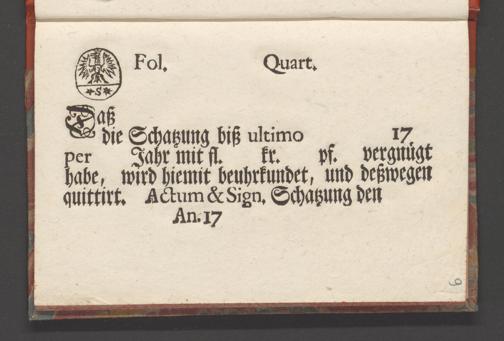 Fol. Quart.
*S*
Daß
die Schatzung biß ultimo 17
per Jahr mit fl. kr. pf. vergnügt
habe, wird hiemit beuhrkundet, und deßwegen
quittirt. Actum & Sign. Schatzung den
An. 17
9